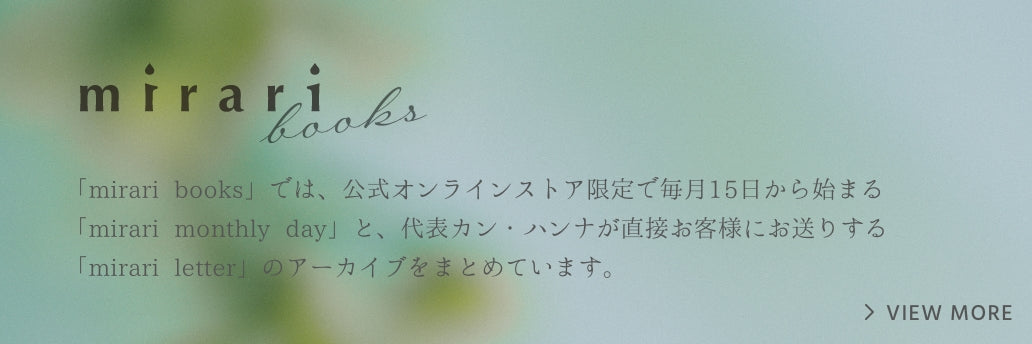 mirari
books
「mirari books」では、公式オンラインストア限定で毎月15日から始まる
「mirari monthly day」と、代表カン・ハンナが直接お客様にお送りする
「mirari letter」のアーカイブをまとめています。
> VIEW MORE